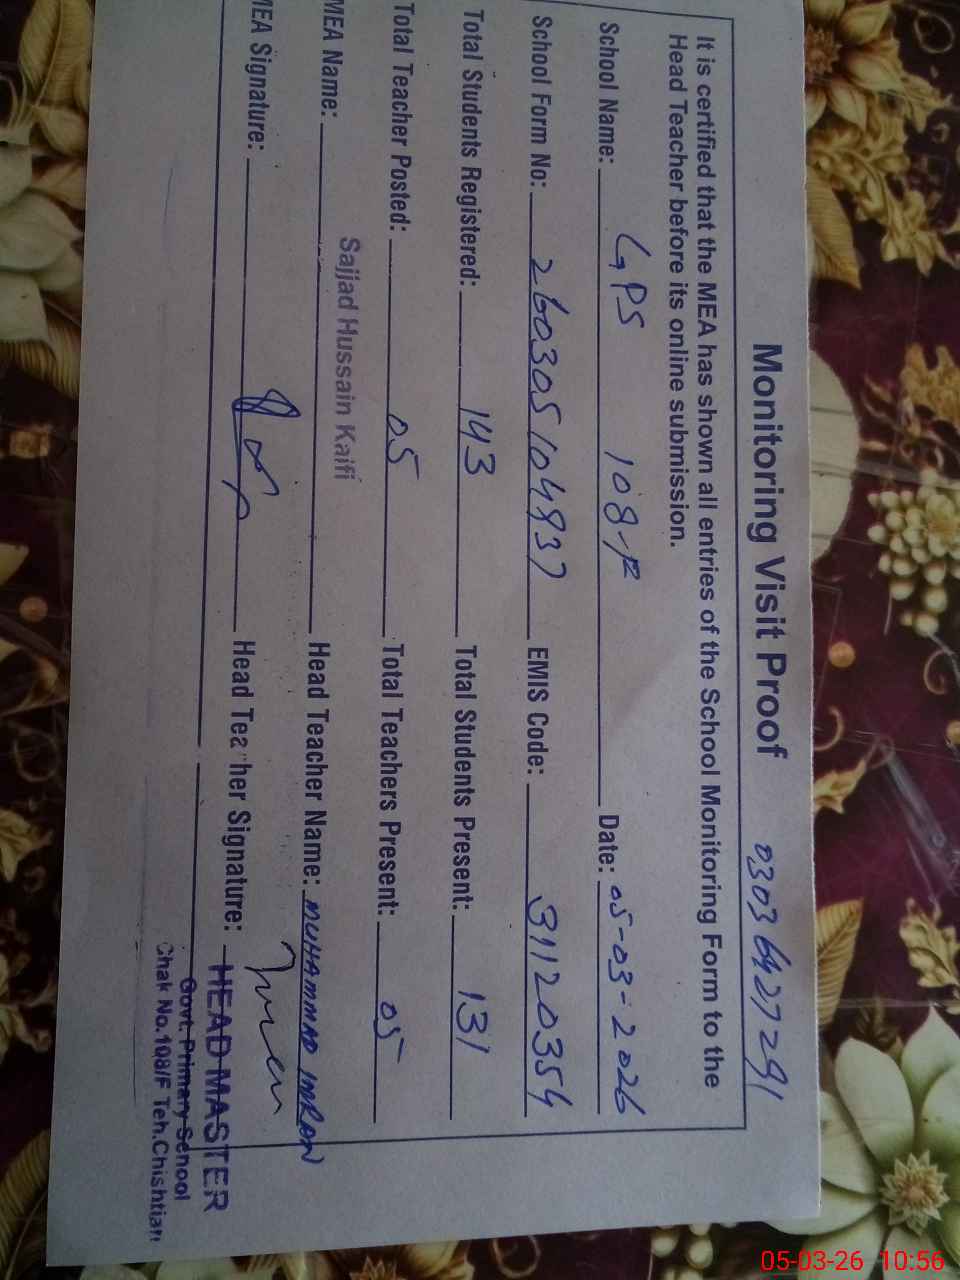 Monitoring Visit Proof 03036427291
It is certified that the MEA has shown all entries of the School Monitoring Form to the
Head Teacher before its online submission.
School Name: GPS 108/F Date: 05-03-2026
School Form No: 260305104937 EMIS Code: 31120354
Total Students Registered: 143 Total Students Present: 131
Total Teacher Posted: 05 Total Teachers Present: 05
MEA Name: Sajjad Hussain Kaifi Head Teacher Name: MUHAMMAD IMRAN
MEA Signature: Head Teacher Signature:
HEAD MASTER
Govt. Primary School
Chak No.108/F Teh.Chishtian
05-03-26 10:56